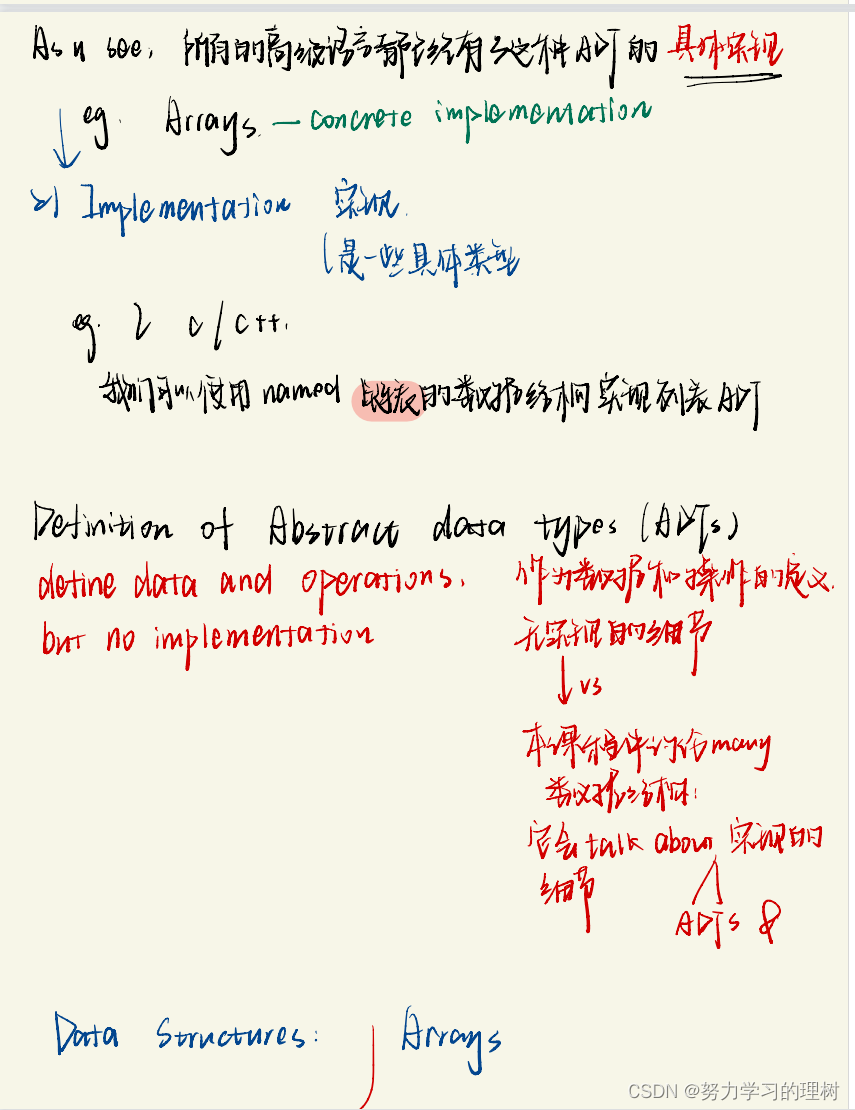 As u see, 所有的高级语言都已经有了这种ADT的 具体实现
eg. Arrays. — concrete implementation
2) Implementation 实现.
(是一些具体类型
eg. 2 c/c++.
我们可以使用 named 链表的数据结构实现列表ADT
Definition of Abstract data types (ADTs)
define data and operations,
but no implementation
作为数据和操作的定义.
无实现的细节
vs
本课程讨论many
数据结构:
它会talk about 实现的
细节
ADTs &
Data Structures: Arrays
CSDN @努力学习的理树